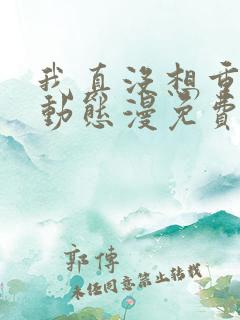 我真没想重
動態漫免費
郭傅
未经同意禁止转载